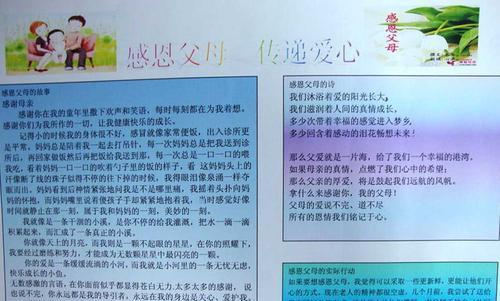 感恩父母 传递爱心
感恩父母
感恩父母的故事
感谢母亲
感谢你在我的童年里撒下欢声和笑语，每时每刻都在为我着想。
感谢你们为我所作的一切，让我健康快乐的成长。
记得小的时候我的身体很不好，感冒就像家常便饭，出入诊所更
是平常，妈妈总是陪着我一起去打吊针，每一次妈妈总是把我送到诊
所，再回家做饭然后再把饭给我送到那，每一次总是一口一口的喂
我吃，看着妈妈一口一口的吹着勺子里的饭的样子，看这妈妈头上的
汗像断了线的珠子似得不停的往下掉的时候，我得眼泪像泉涌一样夺
眶而出。妈妈看到后神情紧张地问我是不是哪里痛，我摇着头扑向妈
妈的怀抱，而妈妈嘴里说着傻孩子手却紧紧地抱着我，当时感觉好像
时间就静止在那一刻，属于我和妈妈的一刻，美妙的一刻。
我就像是一条干涸的小溪，是你不停的给我灌溉，把水一滴一滴
积累起来，而汇成了一条真正的小溪。
你就像天上的月亮，而我则是一颗不起眼的星星，在你的照耀下，
我要经过磨练和努力，才能成为无数颗星星中最闪亮的一颗。
你的爱是一条缓缓流淌的小河，而我就是小河里的一条无忧无虑，
快乐成长的小鱼。
无数感激的言语，在你面前似乎都显得苍白无力.太多太多的感谢，说
也说不完，你永远都是我的导引者，永远在我的身边是关心、爱护我，
感恩父母的诗
我们沐浴着爱的阳光长大，
我们滋润着人间的真情成长，
多少次带着幸福的感觉进入梦乡，
多少回含着感动的泪花畅想未来！
那么父爱就是一片海，给了我们一个幸福的港湾。
如果母亲的真情，点燃了我们心中的希望；
那么父亲的厚爱，将是鼓起我们远航的风帆。
拿什么来感谢你，我的父母！
父母的爱说不完、道不尽
所有的恩情我们铭记于心。
感恩父母的实际行动
如果要想感恩父母，我觉得可以采取一些更新鲜，更能让他们开
心的方式，现在老人的精神都很空虚，几个月前，我尝试了远给